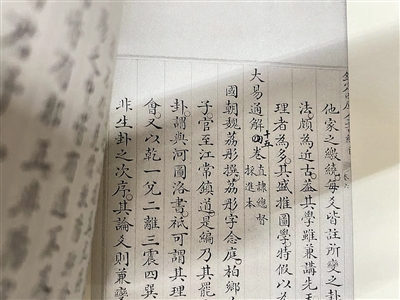 他家之繳繞每爻皆註所變之卦
法頗為近古葢其學雖兼講先
理者為多其盛推圖學特假以為
大易通解十五卷直隸總督採進本
國朝魏荔彤撰荔彤字念庭柏鄉人
子官至江常鎮道是編乃其罷
卦謂與河圖洛書祇可謂其理
會又以乾一兌二離三震四巽
非生卦之次序其論爻則兼變